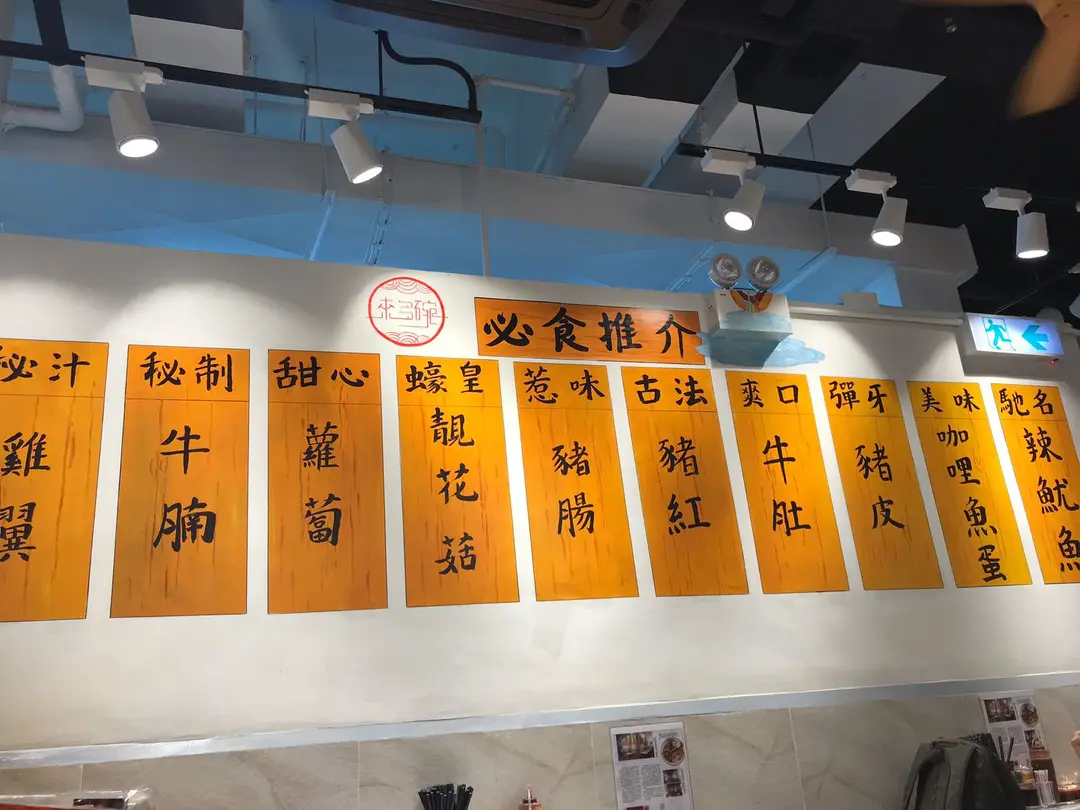 來多碗
必食推介
秘汁
雞翼
秘制
牛腩
甜心
蘿蔔
蠔皇
靚花菇
惹味
豬腸
古法
豬紅
爽口
牛肚
彈牙
豬皮
美味
咖哩魚蛋
馳名
辣魷魚